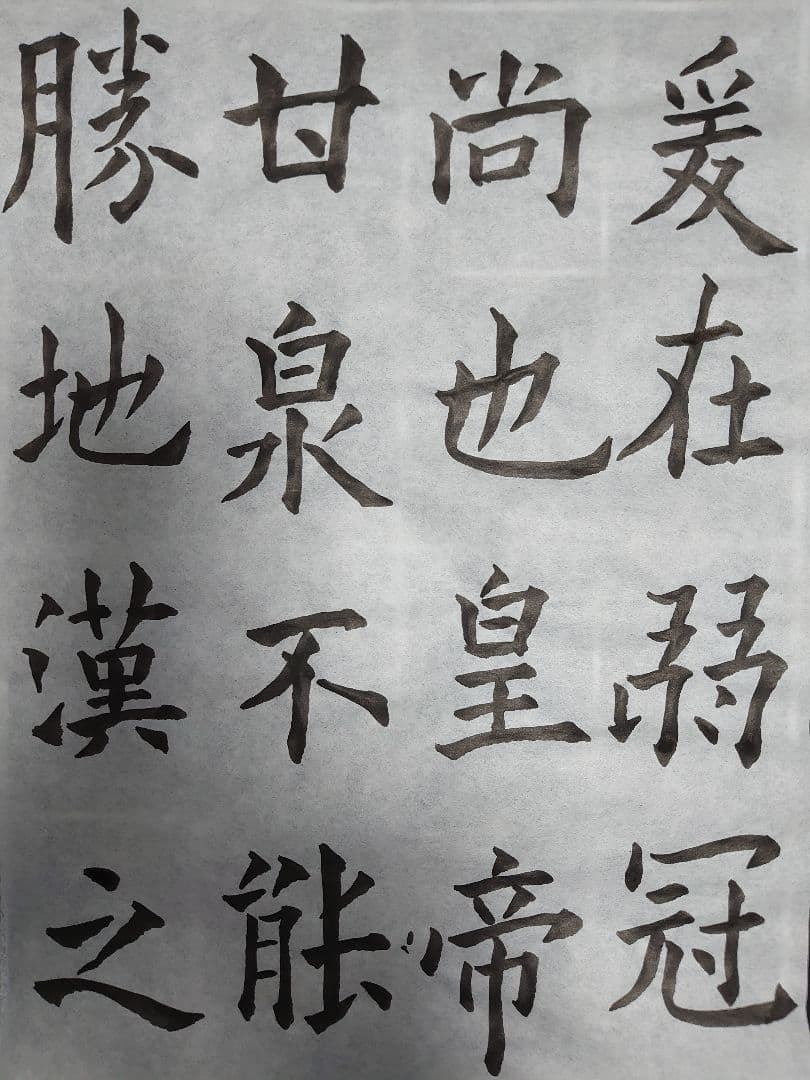 爰在弱冠
尚也皇帝
甘泉不能
勝地漢之